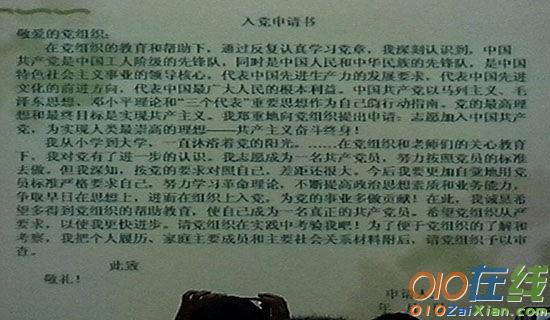 入党申请书
敬爱的党组织:
在党组织的教育和帮助下，通过反复认真学习党章，我深刻认识到，中国
共产党是中国工人阶级的先锋队，同时是中国人民和中华民族的先锋队，是中国
特色社会主义事业的领导核心，代表中国先进生产力的发展要求，代表中国先进
文化的前进方向，代表中国最广大人民的根本利益。中国共产党以马列主义、毛
泽东思想、邓小平理论和“三个代表”重要思想作为自己的行动指南。党的最高理
想和最终目标是实现共产主义。我郑重地向党组织提出申请：志愿加入中国共产
党，为实现人类最崇高的理想——共产主义奋斗终身！
我从小学到大学，一直沐浴着党的阳光。……在党组织和老师们的关心教育
下，我对党有了进一步的认识。我志愿成为一名共产党员，努力按照党员的标准
去做。但我深知，按党的要求对照自己，差距还很大。今后我要更加自觉地用党
员标准严格要求自己。努力学习革命理论，不断提高政治思想素质和业务能力，
争取早日在思想上，进而在组织上入党，为党的事业多做贡献！在此，我诚恳希
望多得到党组织的帮助教育，使自己成为一名真正的共产党员。希望党组织从严
要求，以使我更快进步。请党组织在实践中考验我吧！为了便于党组织的了解和
考察，我把个人履历、家庭主要成员和主要社会关系材料附后，请党组织予以审
查。
此致
敬礼！
申请人
年
010在线
010ZaiXian.com